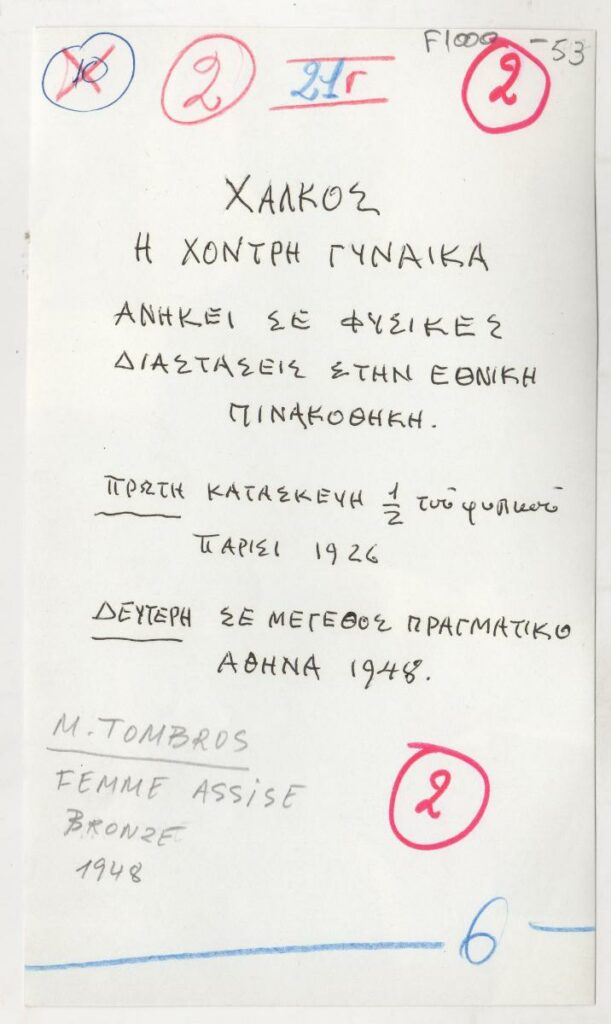 F1000 - 53
10 2 21Γ 2
ΧΑΛΚΟΣ
Η ΧΟΝΤΡΗ ΓΥΝΑΙΚΑ
ΑΝΗΚΕΙ ΣΕ ΦΥΣΙΚΕΣ
ΔΙΑΣΤΑΣΕΙΣ ΣΤΗΝ ΕΘΝΙΚΗ
ΠΙΝΑΚΟΘΗΚΗ.
ΠΡΩΤΗ ΚΑΤΑΣΚΕΥΗ 1/2 τοῦ φυσικοῦ
ΠΑΡΙΣΙ 1926
ΔΕΥΤΕΡΗ ΣΕ ΜΕΓΕΘΟΣ ΠΡΑΓΜΑΤΙΚΟ
ΑΘΗΝΑ 1948.
M. TOMBROS
FEMME ASSISE
BRONZE
1948
2
6